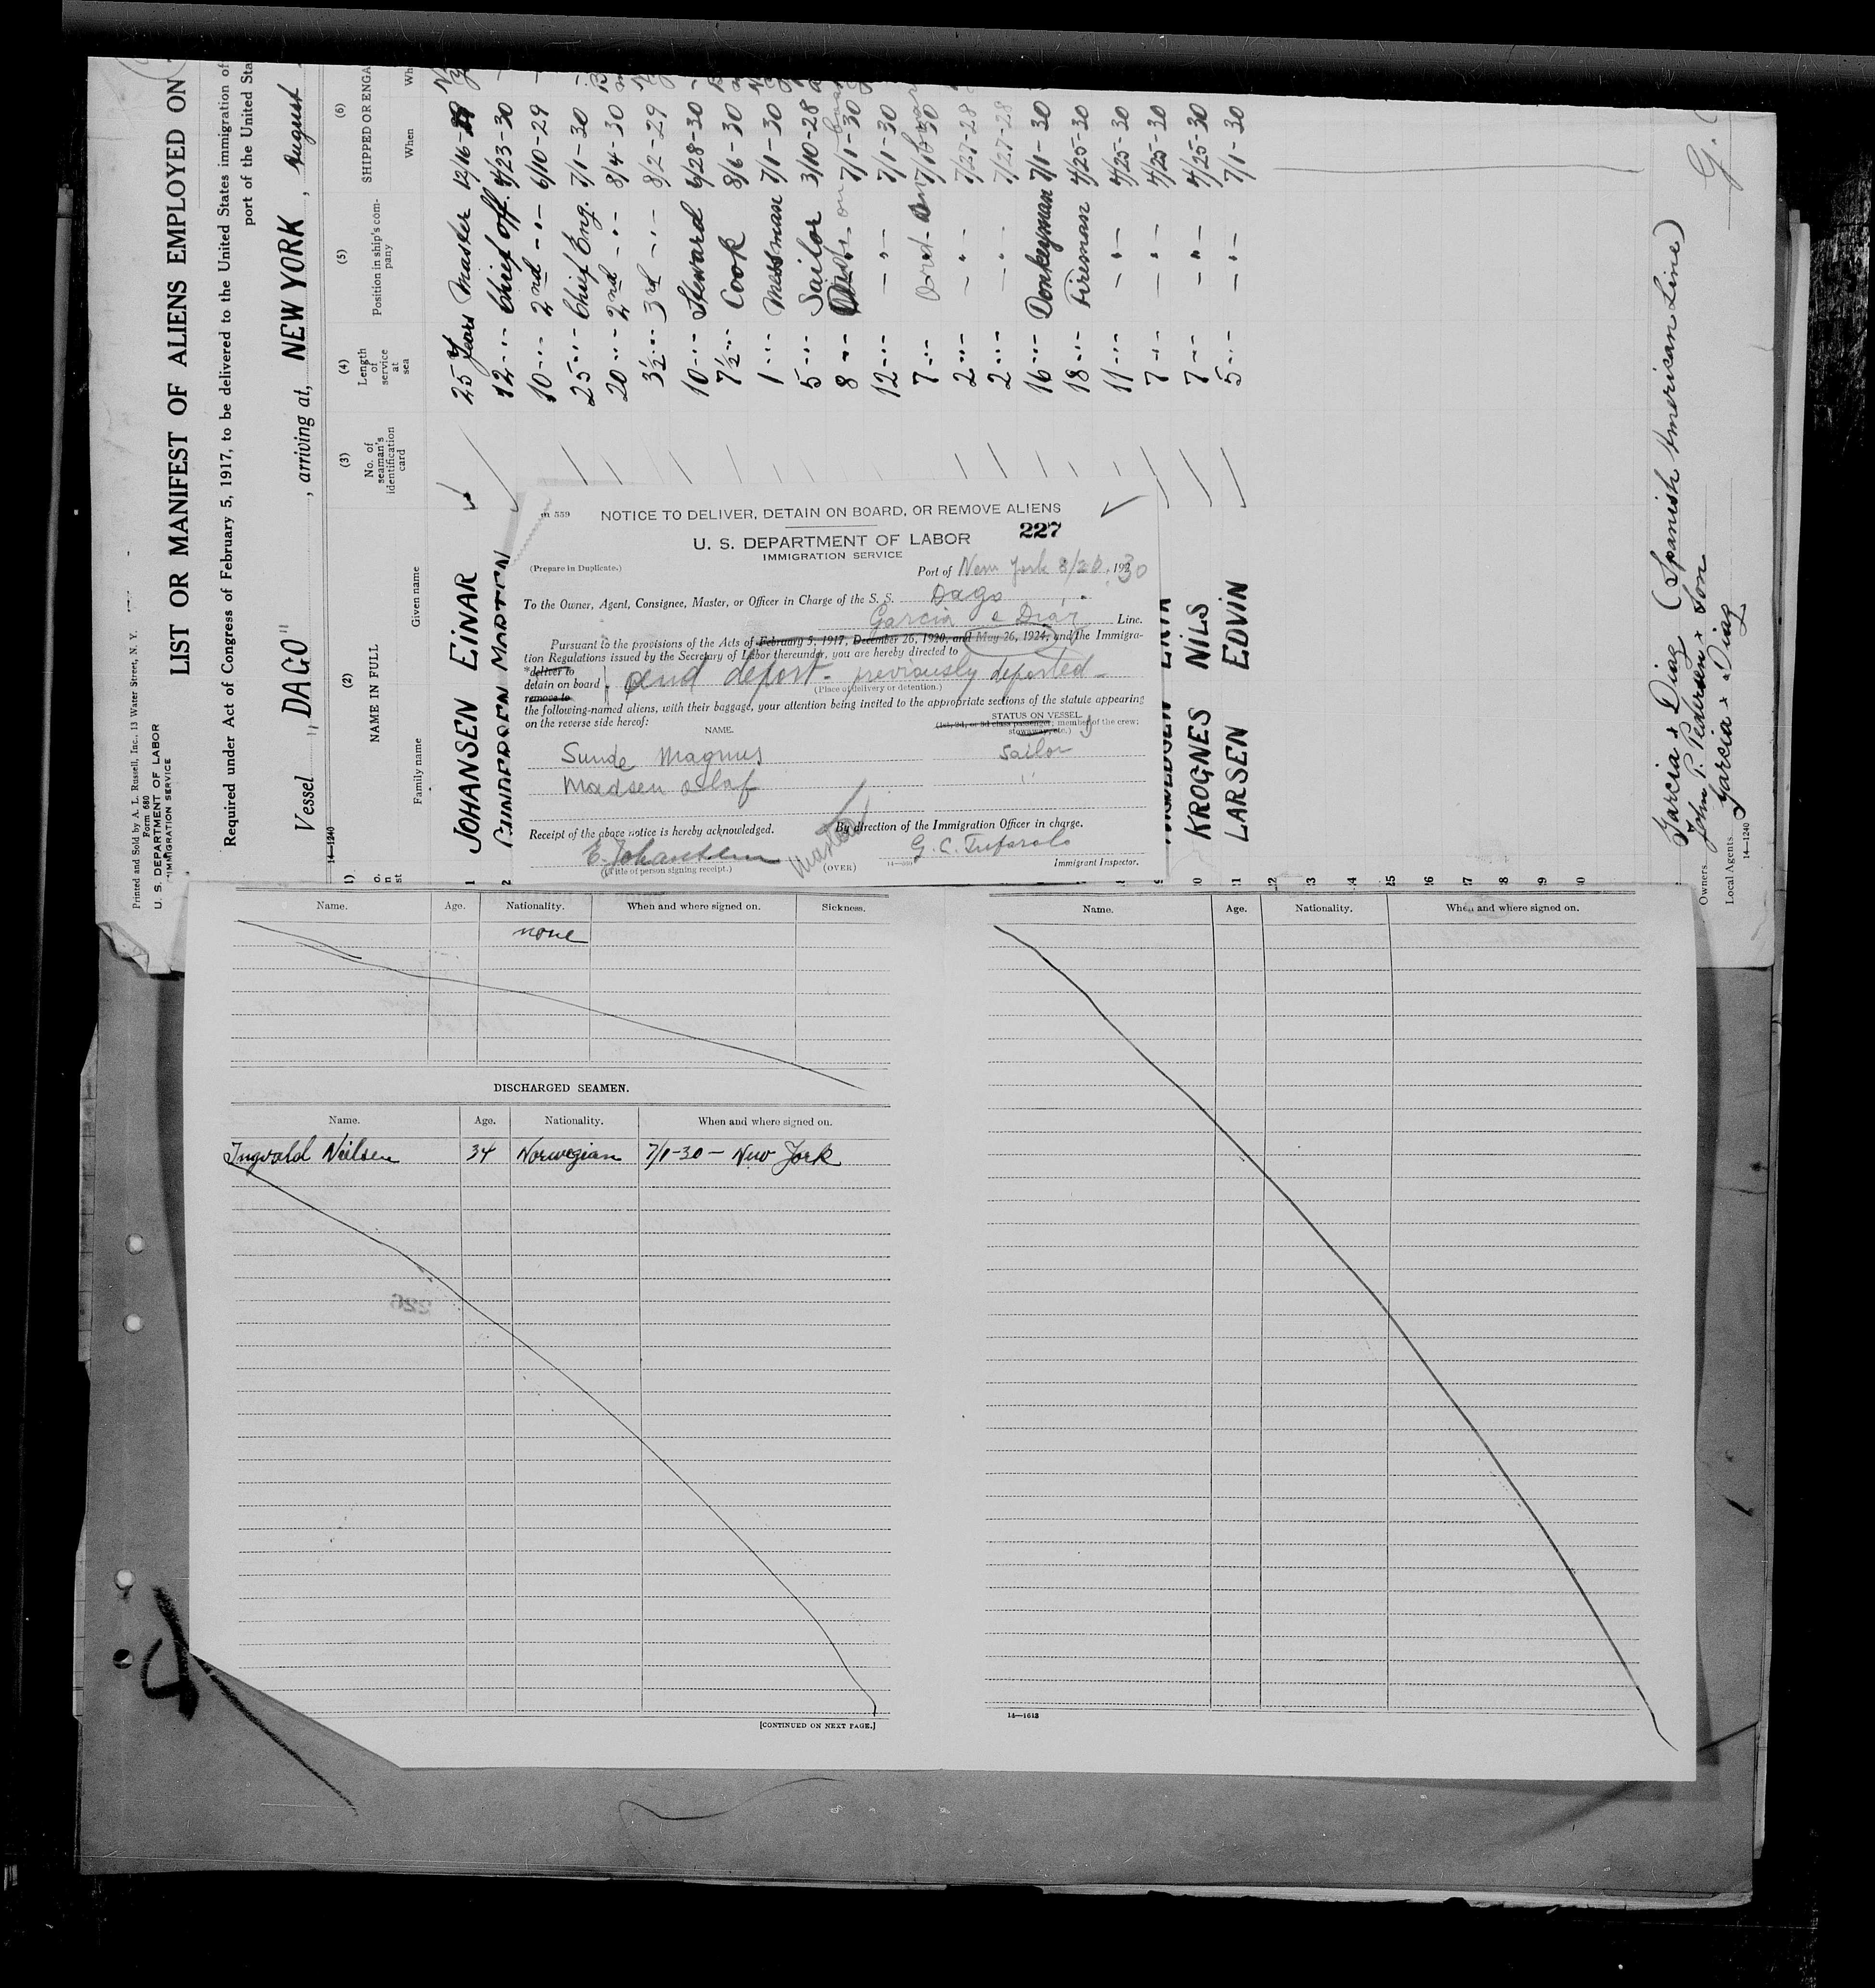 Printed and Sold by A. L. Russell, Inc., 13 Water Street, N. Y.
Form 680
U. S. DEPARTMENT OF LABOR
IMMIGRATION SERVICE
LIST OR MANIFEST OF ALIENS EMPLOYED ON
Required under Act of Congress of February 5, 1917, to be delivered to the United States immigration of
port of the United Sta
Vessel "DAGO", arriving at, NEW YORK, August
14—1240
(2) (3) (4) (5) (6)
NAME IN FULL
Family name Given name
No. of seaman's identification card
Length of service at sea
Position in ship's company
SHIPPED OR ENGA
When Wh
1 JOHANSEN EINAR 25 years Master 12/16-29
2 GUNDERSEN MORTEN 12 -"- Chief off. 4/23-30
10 -"- 2nd -"- 6/10-29
25 -"- Chief Eng. 7/1-30
20 -"- 2nd -"- 8/4-30
3½ -"- 3rd -"- 8/2-29
10 -"- Steward 6/28-30
7½ -"- Cook 8/6-30
1 -"- Messman 7/1-30
5 -"- Sailor 3/10-28
8 -"- 7/1-30
12 -"- -"- 7/1-30
7 -"-
2 -"- -"- 7/27-28
2 -"- -"- 7/27-28
16 -"- Donkeyman 7/1-30
18 -"- Fireman 4/25-30
11 -"- -"- 4/25-30
7 -"- -"- 4/25-30
KROGNES NILS 7 -"- -"- 4/25-30
LARSEN EDVIN 5 -"- -"- 7/1-30
Garcia & Diaz (Spanish American Line)
Owners John P. Pedersen & Son
Local Agents Garcia & Diaz
14—1240
NOTICE TO DELIVER, DETAIN ON BOARD, OR REMOVE ALIENS
227
U. S. DEPARTMENT OF LABOR
IMMIGRATION SERVICE
(Prepare in Duplicate.)
Port of New York 8/20, 1930
To the Owner, Agent, Consignee, Master, or Officer in Charge of the S. S. Dago
Garcia & Diaz Line.
Pursuant to the provisions of the Acts of February 5, 1917, December 26, 1920, and May 26, 1924, and the Immigra-
tion Regulations issued by the Secretary of Labor thereunder, you are hereby directed to
*deliver to
detain on board and deport - previously deported -
remove to
(Place of delivery or detention.)
the following-named aliens, with their baggage, your attention being invited to the appropriate sections of the statute appearing
on the reverse side hereof:
NAME.
STATUS ON VESSEL
(1st, 2d, or 3d class passenger; member of the crew;
stowaway, etc.)
Sunde Magnus sailor
Madsen Olaf "
Receipt of the above notice is hereby acknowledged.
By direction of the Immigration Officer in charge.
E. Johansen
Master
(Title of person signing receipt.)
(OVER)
Immigrant Inspector.
Name. Age. Nationality. When and where signed on. Sickness.
none
DISCHARGED SEAMEN.
Name. Age. Nationality. When and where signed on.
Ingvald Nielsen 34 Norwegian 7/1-30 - New York
[CONTINUED ON NEXT PAGE.]
Name. Age. Nationality. When and where signed on.
14—1613